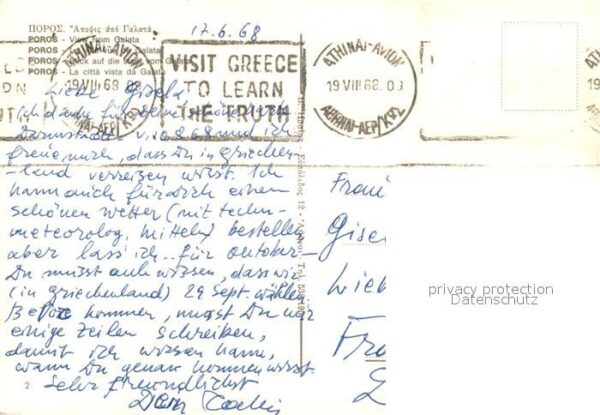 ΠΟΡΟΣ. Ἄποψις ἀπὸ Γαλατᾶ
POROS - View from Galata
POROS - Galata
POROS - Blick auf die from Galata
POROS - La città vista da Galata
17.6.68
ΑΘΗΝΑΙ-ΑΥΙΟΝ
19 VIII 68
ΑΘΗΝΑΙ-ΑΕΡ/ΚΩΣ
VISIT GREECE
TO LEARN
THE TRUTH
ATHINAI-AVION
19 VIII 68. 03
ΑΘΗΝΑΙ-ΑΕΡ/ΚΩΣ
Liebe Gisela
Ich danke für deine
Darmstadt v. 10.8.68 und ich
freue mich, dass Du in griechen-
land verreisen wirst. Ich
kann auch für dich einen
schönen wetter (mit techn-
meteorolog. Mitteln) bestellen
aber lass ich.. für October-
Du musst auch wissen, dass wir
(in griechenland) 29 Sept. wählen
Bevor kommen, musst Du mir
einige Zeilen schreiben,
damit ich wissen kann,
wann Du genau kommen wirst.
Sehr freundlichst
Dein
2
Frau
Gisel
Lieb
Fra
privacy protection
Datenschutz